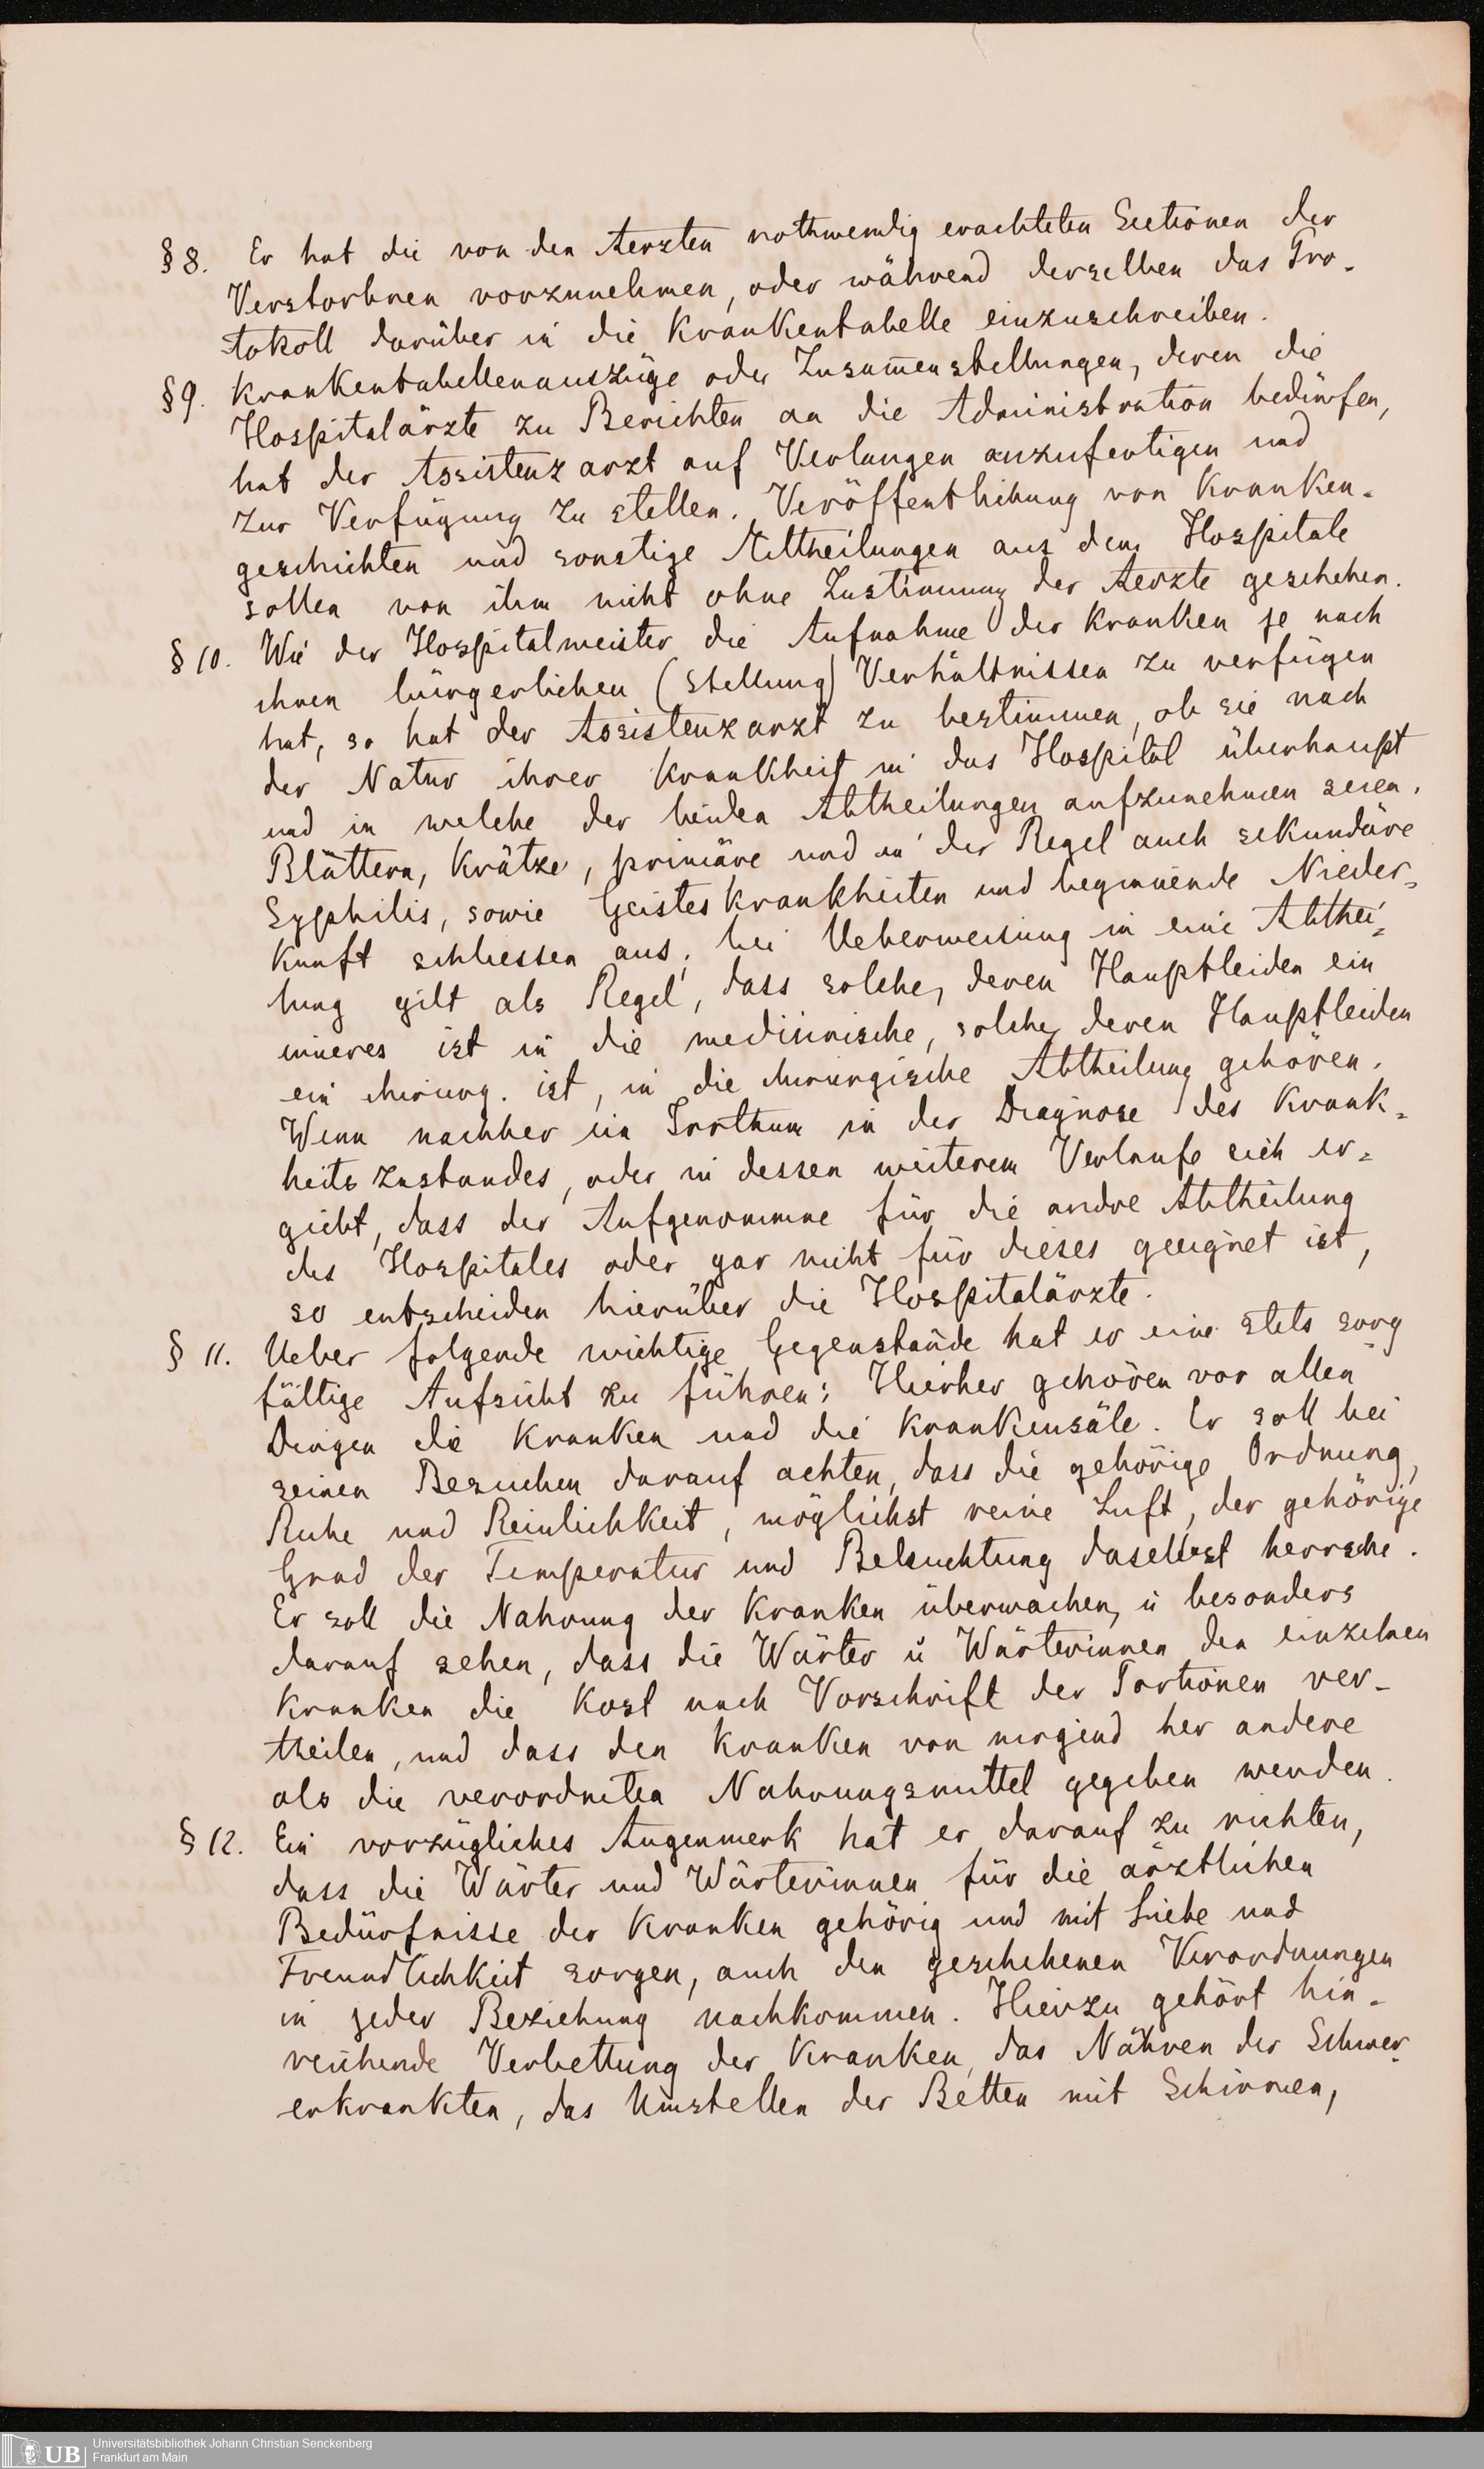 § 8. Er hat die von den Aerzten nothwendig erachteten Sectionen der
Verstorbnen vorzunehmen, oder während derselben das Pro-
tokoll darüber in die Krankentabelle einzuschreiben.
§ 9. Krankentabellenauszüge oder Zusam̅enstellungen, deren die
Hospitalärzte zu Berichten an die Administration bedürfen,
hat der Assistenzarzt auf Verlangen anzufertigen und
zur Verfügung zu stellen. Veröffentlichung von Kranken-
geschichten und sonstige Mittheilungen aus dem Hospitale
sollen von ihm nicht ohne Zustimmung der Aerzte geschehen.
§ 10. Wie der Hospitalmeister die Aufnahme der Kranken je nach
ihren bürgerlichen (Stellung) Verhältnissen zu verfügen
hat, so hat der Assistenzarzt zu bestimmen, ob sie nach
der Natur ihrer Krankheit in das Hospital überhaupt
und in welche der beiden Abtheilungen aufzunehmen seien.
Blättern, Krätze, primäre und in der Regel auch sekundäre
Syphilis, sowie Geisteskrankheiten und beginnende Nieder-
kunft schliessen aus; bei Ueberweisung in eine Abthei-
lung gilt als Regel, dass solche, deren Hauptleiden ein
inneres ist in die medicinische, solche, deren Hauptleiden
ein chirurg. ist, in die chirurgische Abtheilung gehören.
Wenn nachher ein Irrthum in der Diagnose des Krank-
heitszustandes, oder in dessen weiterem Verlaufe sich er-
giebt, dass der Aufgenommne für die andre Abtheilung
des Hospitales oder gar nicht für dieses geeignet ist,
so entscheiden hierüber die Hospitalärzte.
§ 11. Ueber folgende wichtige Gegenstände hat er eine stets sorg
fältige Aufsicht zu führen: Hierher gehören vor allen
Dingen die Kranken und die Krankensäle. Er soll bei
seinen Besuchen darauf achten, dass die gehörige Ordnung,
Ruhe und Reinlichkeit, möglichst reine Luft, der gehörige
Grad der Temperatur und Beleuchtung daselbst herrsche.
Er soll die Nahrung der Kranken überwachen, u besonders
darauf sehen, dass die Wärter u Wärterinnen den einzelnen
Kranken die Kost nach Vorschrift der Portionen ver-
theilen, und dass den Kranken von nirgend her andere
als die verordneten Nahrungsmittel gegeben werden.
§ 12. Ein vorzügliches Augenmerk hat er darauf zu richten,
dass die Wärter und Wärterinnen für die ärztlichen
Bedürfnisse der Kranken gehörig und mit Liebe und
Freundlichkeit sorgen, auch den geschehenen Verordnungen
in jeder Beziehung nachkommen. Hierzu gehört hin-
reichende Verbettung der Kranken, das Nähren der Schwer-
erkrankten, das Umstellen der Betten mit Schirmen,
UB
Universitätsbibliothek Johann Christian Senckenberg
Frankfurt am Main